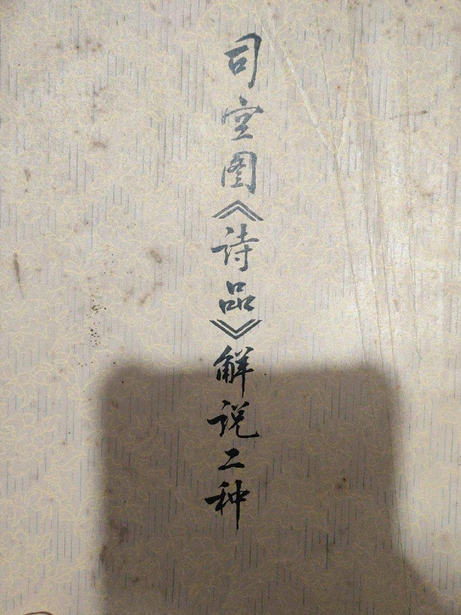 司空图《诗品》解说二种